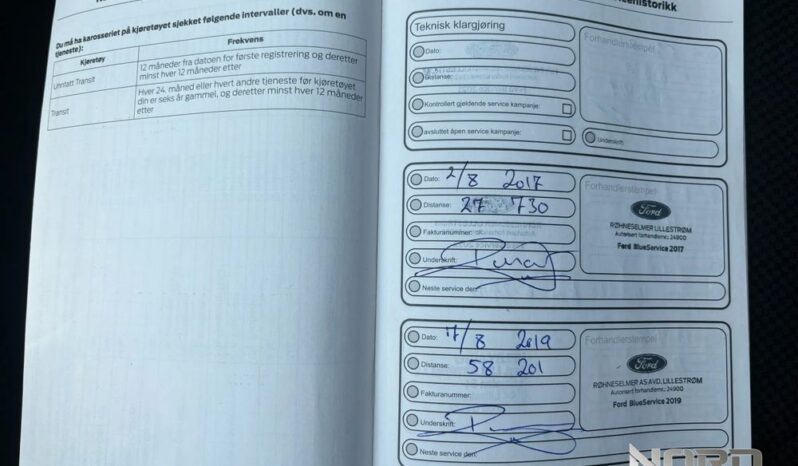 Du må ha karosseriet på kjøretøyet sjekket følgende intervaller (dvs. om en
tjeneste):
Kjøretøy
Frekvens
Unntatt Transit
12 måneder fra datoen for første registrering og deretter
minst hver 12 måneder etter
Transit
Hver 24. måned eller hvert andre tjeneste før kjøretøyet
din er seks år gammel, og deretter minst hver 12 måneder
etter
Teknisk klargjøring
Forhandlerstempel
Dato:
Distanse:
Kontrollert gjeldende service kampanje:
avsluttet åpen service kampanje:
Underskrift
Dato: 2/8 2017
Distanse: 27 730
Fakturanummer:
Underskrift:
Neste service den:
Forhandlerstempel
Ford
RØHNESELMER LILLESTRØM
Autorisert forhandlernr.: 24900
Ford BlueService 2017
Dato: 17/8 2019
Distanse: 58 201
Fakturanummer:
Underskrift:
Neste service den:
Forhandlerstempel
Ford
RØHNESELMER AS AVD. LILLESTRØM
Autorisert forhandlernr.: 24900
Ford BlueService 2019
NORD